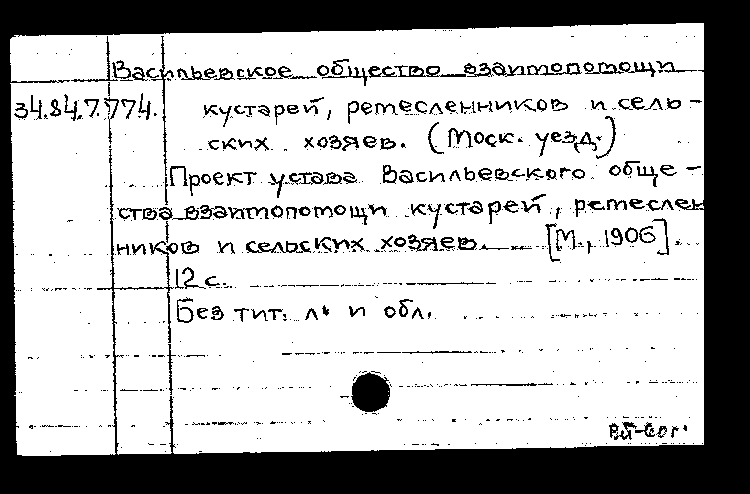 Васильевское общество взаимопомощи
34.84.7.774. кустарей, ремесленников и сель-
ских хозяев. (Моск. уезд.)
Проект устава Васильевского обще-
ства взаимопомощи кустарей, ремеслен
ников и сельских хозяев. [М., 1906].
12 с.
Без тит. л. и обл.